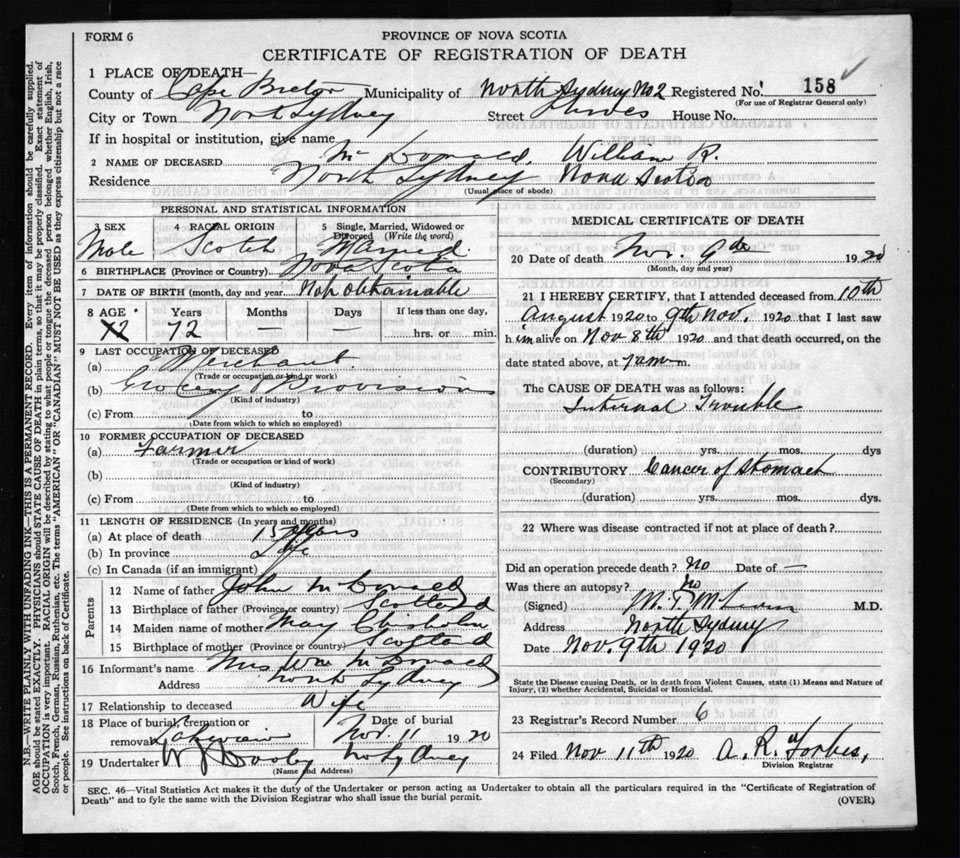 FORM 6
PROVINCE OF NOVA SCOTIA
CERTIFICATE OF REGISTRATION OF DEATH
1 PLACE OF DEATH—
County of Cape Breton Municipality of North Sydney No 2 Registered No. 158
(For use of Registrar General only)
City or Town North Sydney Street House No.
If in hospital or institution, give name
2 NAME OF DECEASED McDonald, William R.
Residence North Sydney Nova Scotia
(Usual place of abode)
PERSONAL AND STATISTICAL INFORMATION
3 SEX 4 RACIAL ORIGIN 5 Single, Married, Widowed or Divorced (Write the word)
Male Scotch Married
6 BIRTHPLACE (Province or Country) Nova Scotia
7 DATE OF BIRTH (month, day and year) Not obtainable
8 AGE Years Months Days If less than one day,
72 72 — — hrs. or min.
9 LAST OCCUPATION OF DECEASED
(a) Merchant
(Trade or occupation or kind of work)
(b) Grocery Provision
(Kind of industry)
(c) From to
(Date from which to which so employed)
10 FORMER OCCUPATION OF DECEASED
(a) Farmer
(Trade or occupation or kind of work)
(b)
(Kind of industry)
(c) From to
(Date from which to which so employed)
11 LENGTH OF RESIDENCE (In years and months)
(a) At place of death 15 years
(b) In province Life
(c) In Canada (if an immigrant)
Parents
12 Name of father John McDonald
13 Birthplace of father (Province or country) Scotland
14 Maiden name of mother May Chisholm
15 Birthplace of mother (Province or country) Scotland
16 Informant's name Mrs Wm McDonald
Address North Sydney
17 Relationship to deceased Wife
18 Place of burial, cremation or removal Lakeview Date of burial Nov. 11 1920
19 Undertaker No Sydney
(Name and Address)
MEDICAL CERTIFICATE OF DEATH
20 Date of death Nov. 9th 1920
(Month, day and year)
21 I HEREBY CERTIFY, that I attended deceased from 10th
August 1920 to 9th Nov. 1920 that I last saw
h im alive on Nov 8th 1920 and that death occurred, on the
date stated above, at 7 am m.
The CAUSE OF DEATH was as follows:
Internal Trouble
(duration) yrs. mos. dys
CONTRIBUTORY Cancer of Stomach
(Secondary)
(duration) yrs. mos. dys.
22 Where was disease contracted if not at place of death?
Did an operation precede death? No Date of —
Was there an autopsy? No
(Signed) M.D.
Address North Sydney
Date Nov. 9th 1920
State the Disease causing Death, or in death from Violent Causes, state (1) Means and Nature of Injury, (2) whether Accidental, Suicidal or Homicidal.
23 Registrar's Record Number 6
24 Filed Nov 11th 1920 A. R. Forbes,
Division Registrar
SEC. 46—Vital Statistics Act makes it the duty of the Undertaker or person acting as Undertaker to obtain all the particulars required in the "Certificate of Registration of
Death" and to fyle the same with the Division Registrar who shall issue the burial permit.
(OVER)
N.B.—WRITE PLAINLY WITH UNFADING INK—THIS IS A PERMANENT RECORD. Every item of information should be carefully supplied.
AGE should be stated EXACTLY. PHYSICIANS should STATE CAUSE OF DEATH in plain terms, so that it may be properly classified. Exact statement of
OCCUPATION is very important. RACIAL ORIGIN will be described by stating to what people or tongue the deceased person belonged whether English, Irish,
Scotch, French, German, Russian, Ruthenian, etc. The terms "AMERICAN" OR "CANADIAN" MUST NOT BE USED as they express citizenship but not a race
or people. See instructions on back of Certificate.